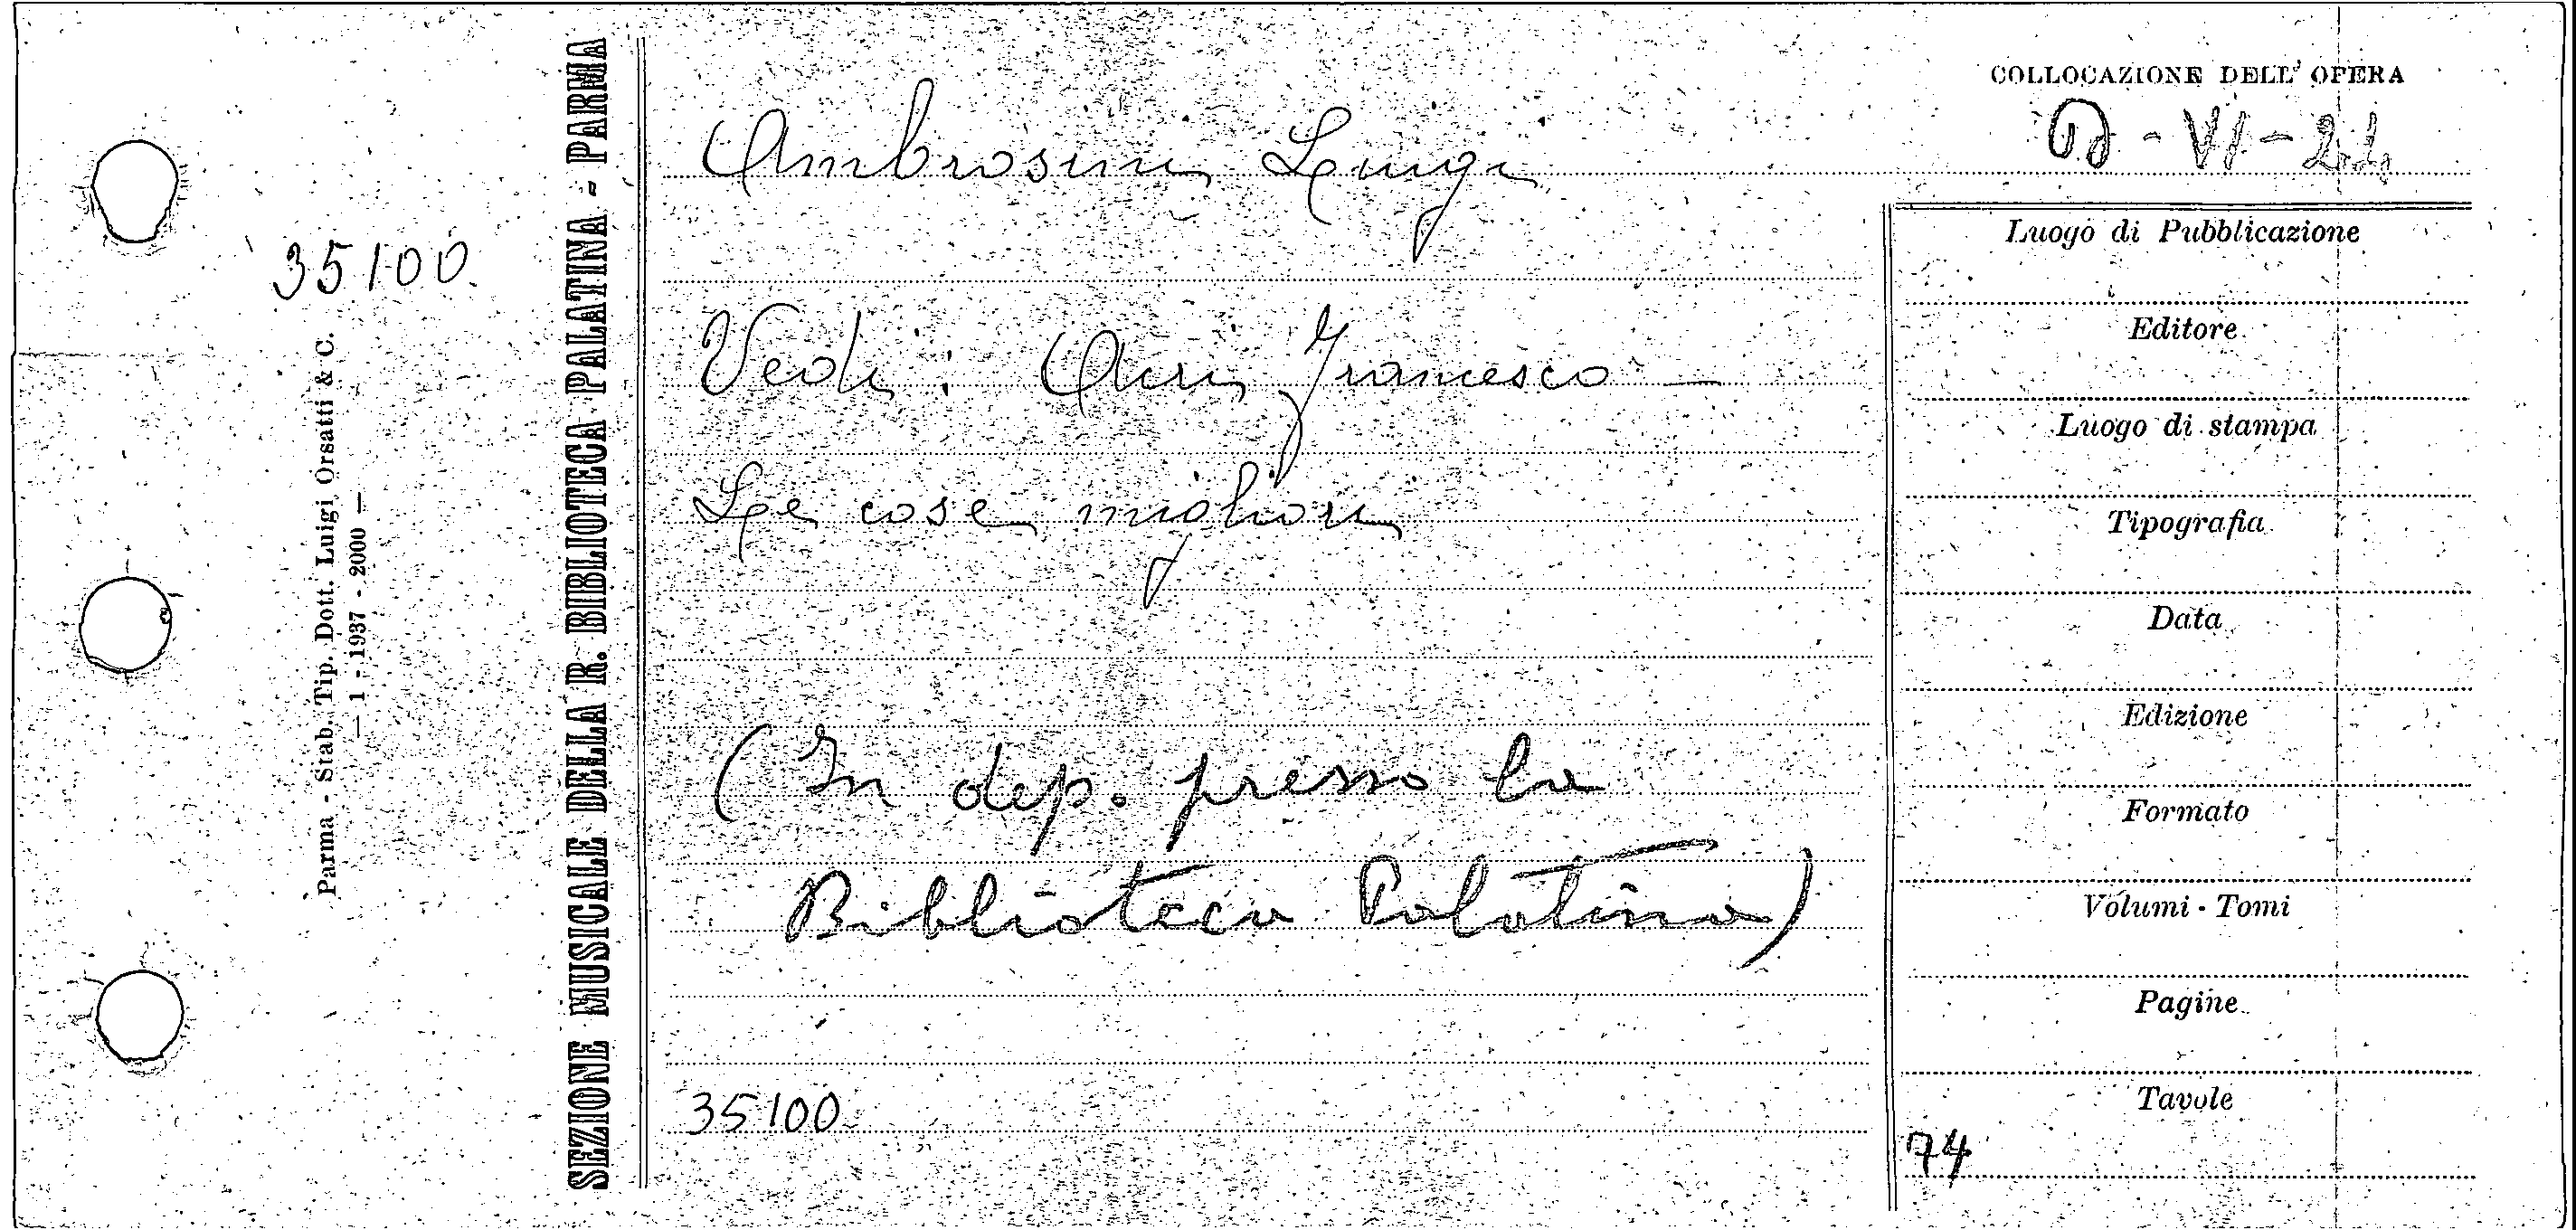 35100
Parma - Stab. Tip. Dott. Luigi Orsatti & C.
— 1 - 1937 - 2000 —
SEZIONE MUSICALE DELLA R. BIBLIOTECA PALATINA - PARMA
Ambrosini Luigi
Vedi: Acri, Francesco —
Le cose migliori
(In dep. presso la
Biblioteca Palatina)
35100
COLLOCAZIONE DELL' OPERA
Luogo di Pubblicazione
Editore
Luogo di stampa
Tipografia
Data
Edizione
Formato
Volumi - Tomi
Pagine
Tavole
74